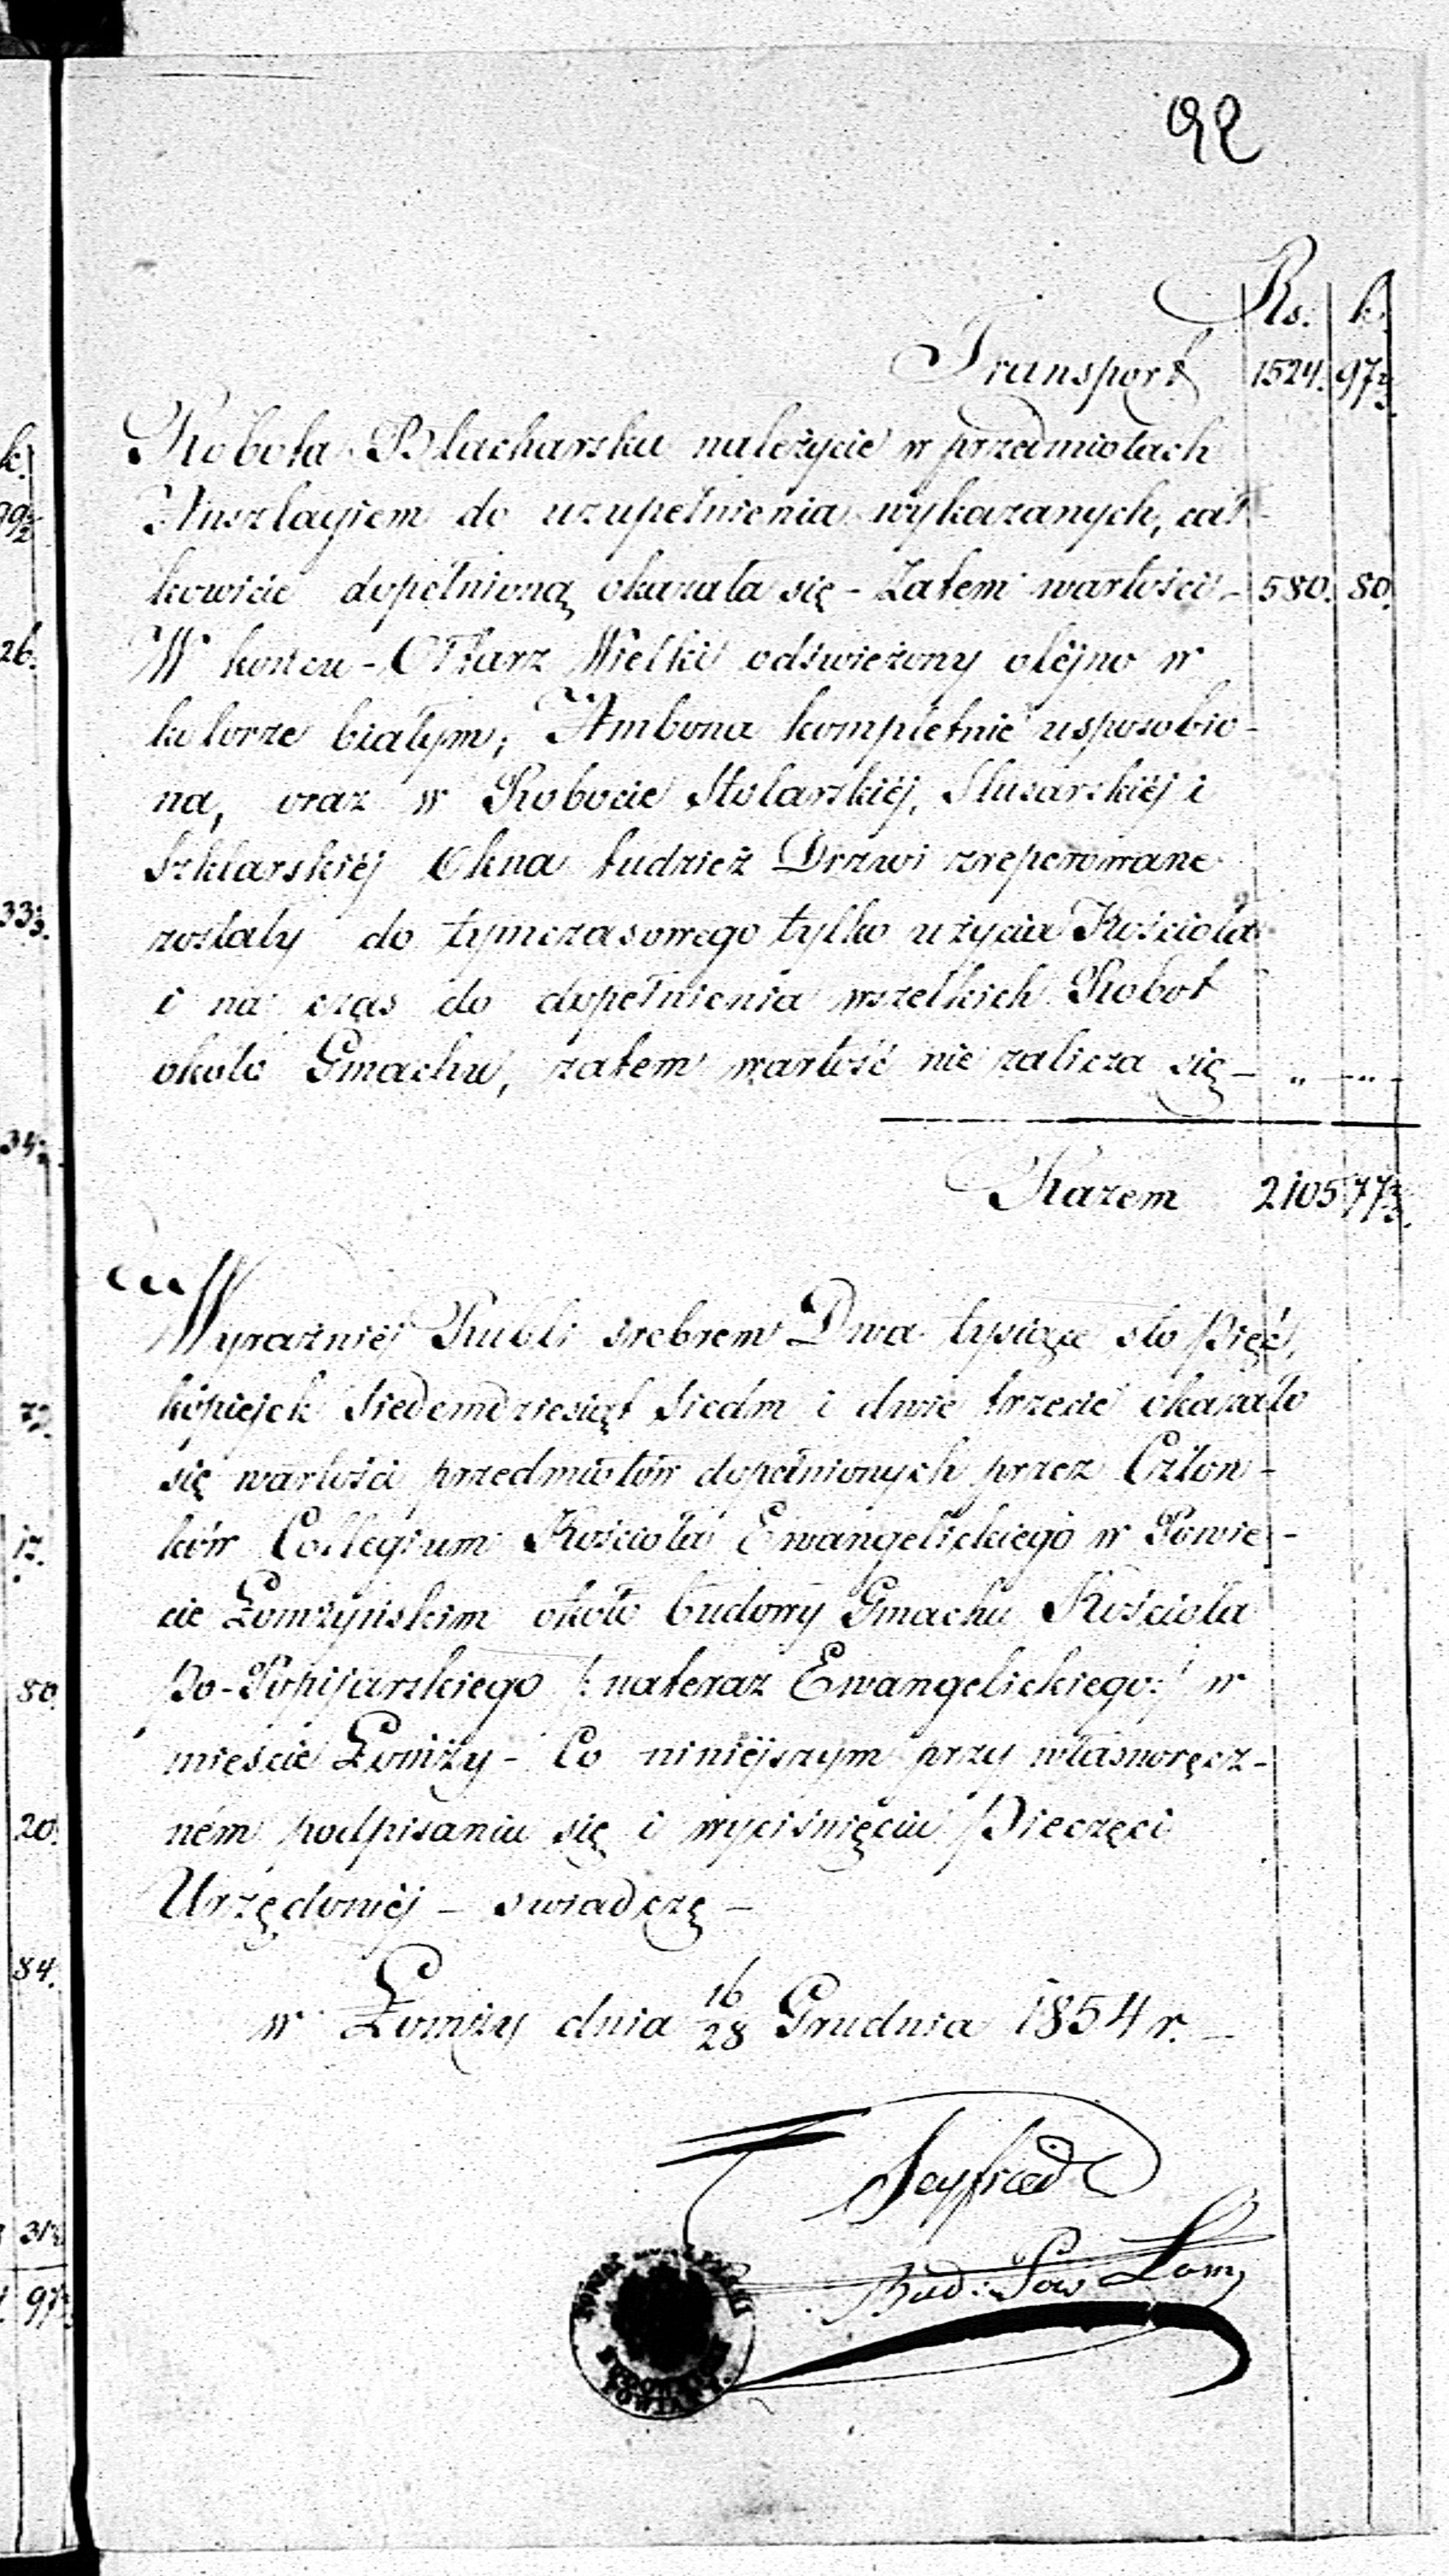 92
Rs. k.
Transport 1524. 97⅔.
Robota Blacharska należycie w przedmiotach
Anszlagiem do uzupełnienia wykazanych, cał-
kowicie dopełnioną okazała się - Zatem wartości - 580. 80.
W końcu - Ołtarz Wielki odświeżony olejno w
kolorze białym; Ambona kompletnie usposobio-
na, oraz w Robocie Stolarskiéj, Slusarskiéj i
Szklarskiéj Okna tudzież Drzwi zreperowane
zostały do tymczasowego tylko użycia Kościoła
i na czas do dopełnienia wszelkich Robot
około Gmachu, zatem wartość nie zalicza się - „ - „ -
Razem 2105 77⅔.
Wyraźniéj Rubli srebrem Dwa tysiące sto Pięć,
kopiejek Siedemdziesiąt Siedm i dwie trzecie okazało
się wartości przedmiotów dopełnionych przez Człon-
ków Collegium Kościoła Ewangelickiego w Powie-
cie Łomżyńskim około budowy Gmachu Kościoła
Po-Popijarskiego /: nateraz Ewangelickiego :/ w
mieście Łomży - Co niniéjszym przy własnoręcz-
ném podpisaniu się i wyciśnięciu Pieczęci
Urzędowéj - swiadczę -
w Łomży dnia 16/28 Grudnia 1854 r. -
Seyfried
Bud: Pow Łom
k.
99½
26.
33⅓.
34⅔.
72.
17.
80.
20.
84.
31⅔
97⅔